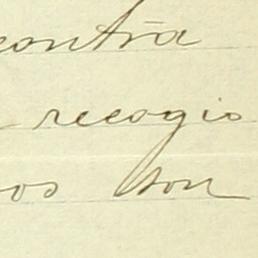 contra
recogio
os son